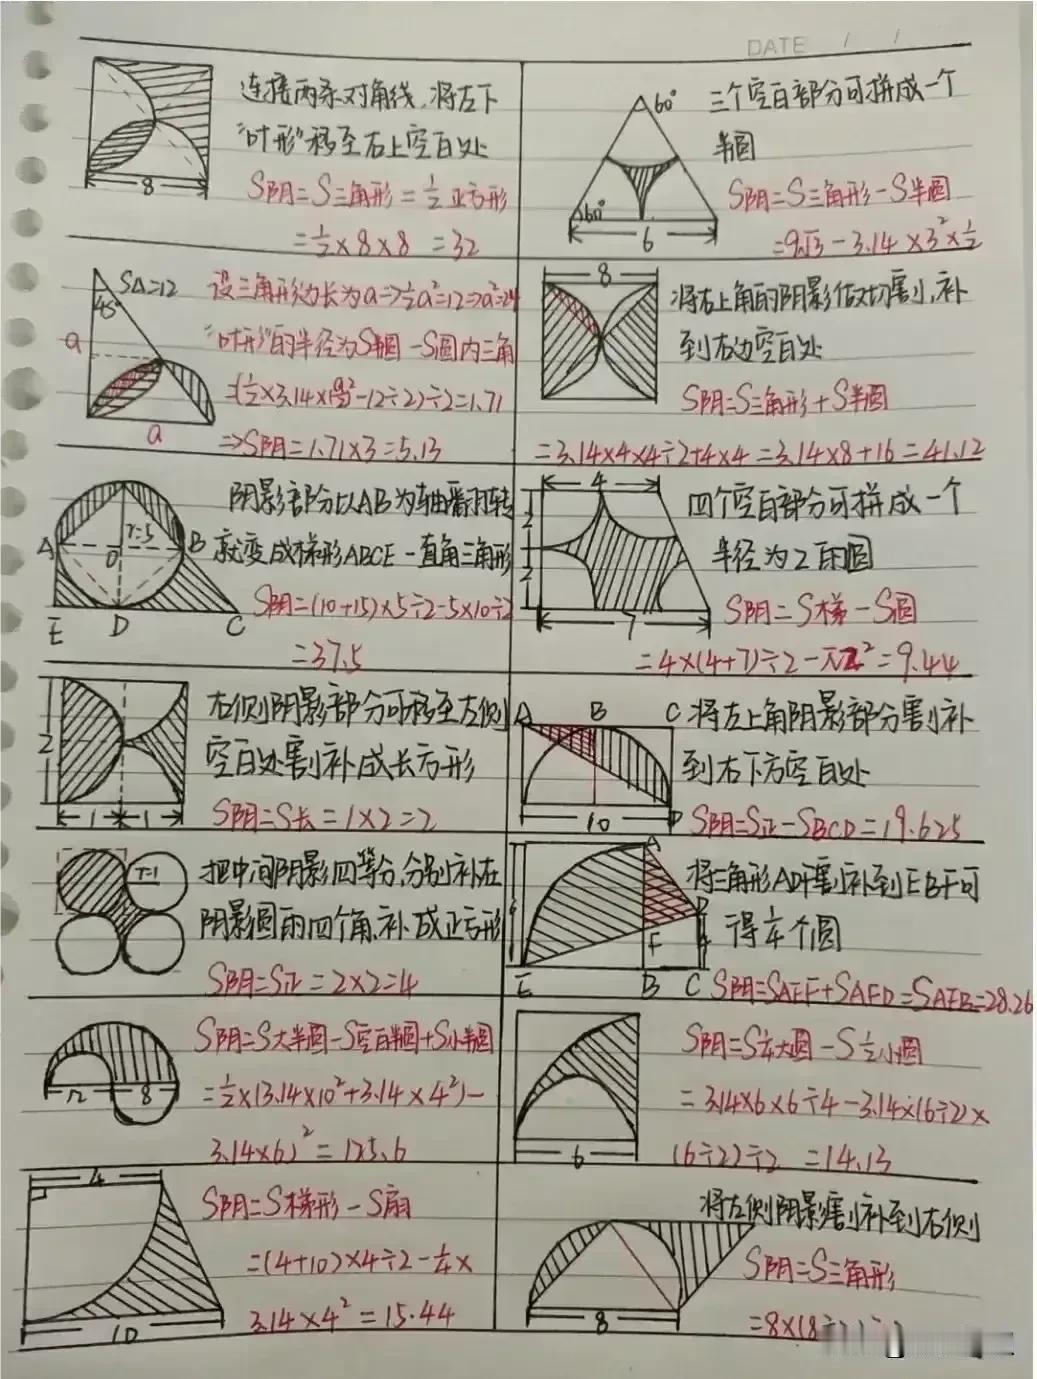 DATE / /
连接两条对角线,将左下
"叶形"移至右上空白处
S阴=S三角形=½正方形
=½×8×8=32
8
60°
60°
6
三个空白部分可拼成一个
半圆
S阴=S三角形-S半圆
=9√3-3.14×3²×½
S△=12
45°
a
a
设三角形边长为a=>½a²=12=>a²=24
"叶形"的半径为S半圆-S圆内三角
-12÷2)÷2=1.71
=>S阴=1.71×3=5.13
8
将右上角的阴影做切割,补
到右边空白处
S阴=S三角形+S半圆
=3.14×4×4÷2+4×4=3.14×8+16=41.12
A
O
r=5
B
E
D
C
阴影部分以AB为轴翻转
就变成梯形ABCE-直角三角形
S阴=(10+15)×5÷2-5×10÷2
=37.5
4
2
2
7
四个空白部分可拼成一个
半径为2的圆
S阴=S梯-S圆
=4×(4+7)÷2-π2²=9.44
2
1
1
右侧阴影部分可移至左侧
空白处割补成长方形
S阴=S长=1×2=2
A
B
C
D
10
将左上角阴影部分割补
到右下方空白处
S阴=S正-SBCD=19.625
r=1
把中间阴影四等分,分别补在
阴影圆的四个角,补成正方形
S阴=S正=2×2=4
A
D
F
E
B
C
将三角形ADF割补到EBF可
得¼个圆
S阴=SAEF+SAFD=SAEB=28.26
12
8
S阴=S大半圆-S空白半圆+S小半圆
=½×(3.14×10²+3.14×4²)-
3.14×6)²=125.6
6
S阴=S¼大圆-S½小圆
=3.14×6×6÷4-3.14×(6÷2)×
(6÷2)÷2=14.13
4
10
S阴=S梯形-S扇
=(4+10)×4÷2-¼×
3.14×4²=15.44
8
将左侧阴影割补到右侧
S阴=S三角形
=8×(8÷